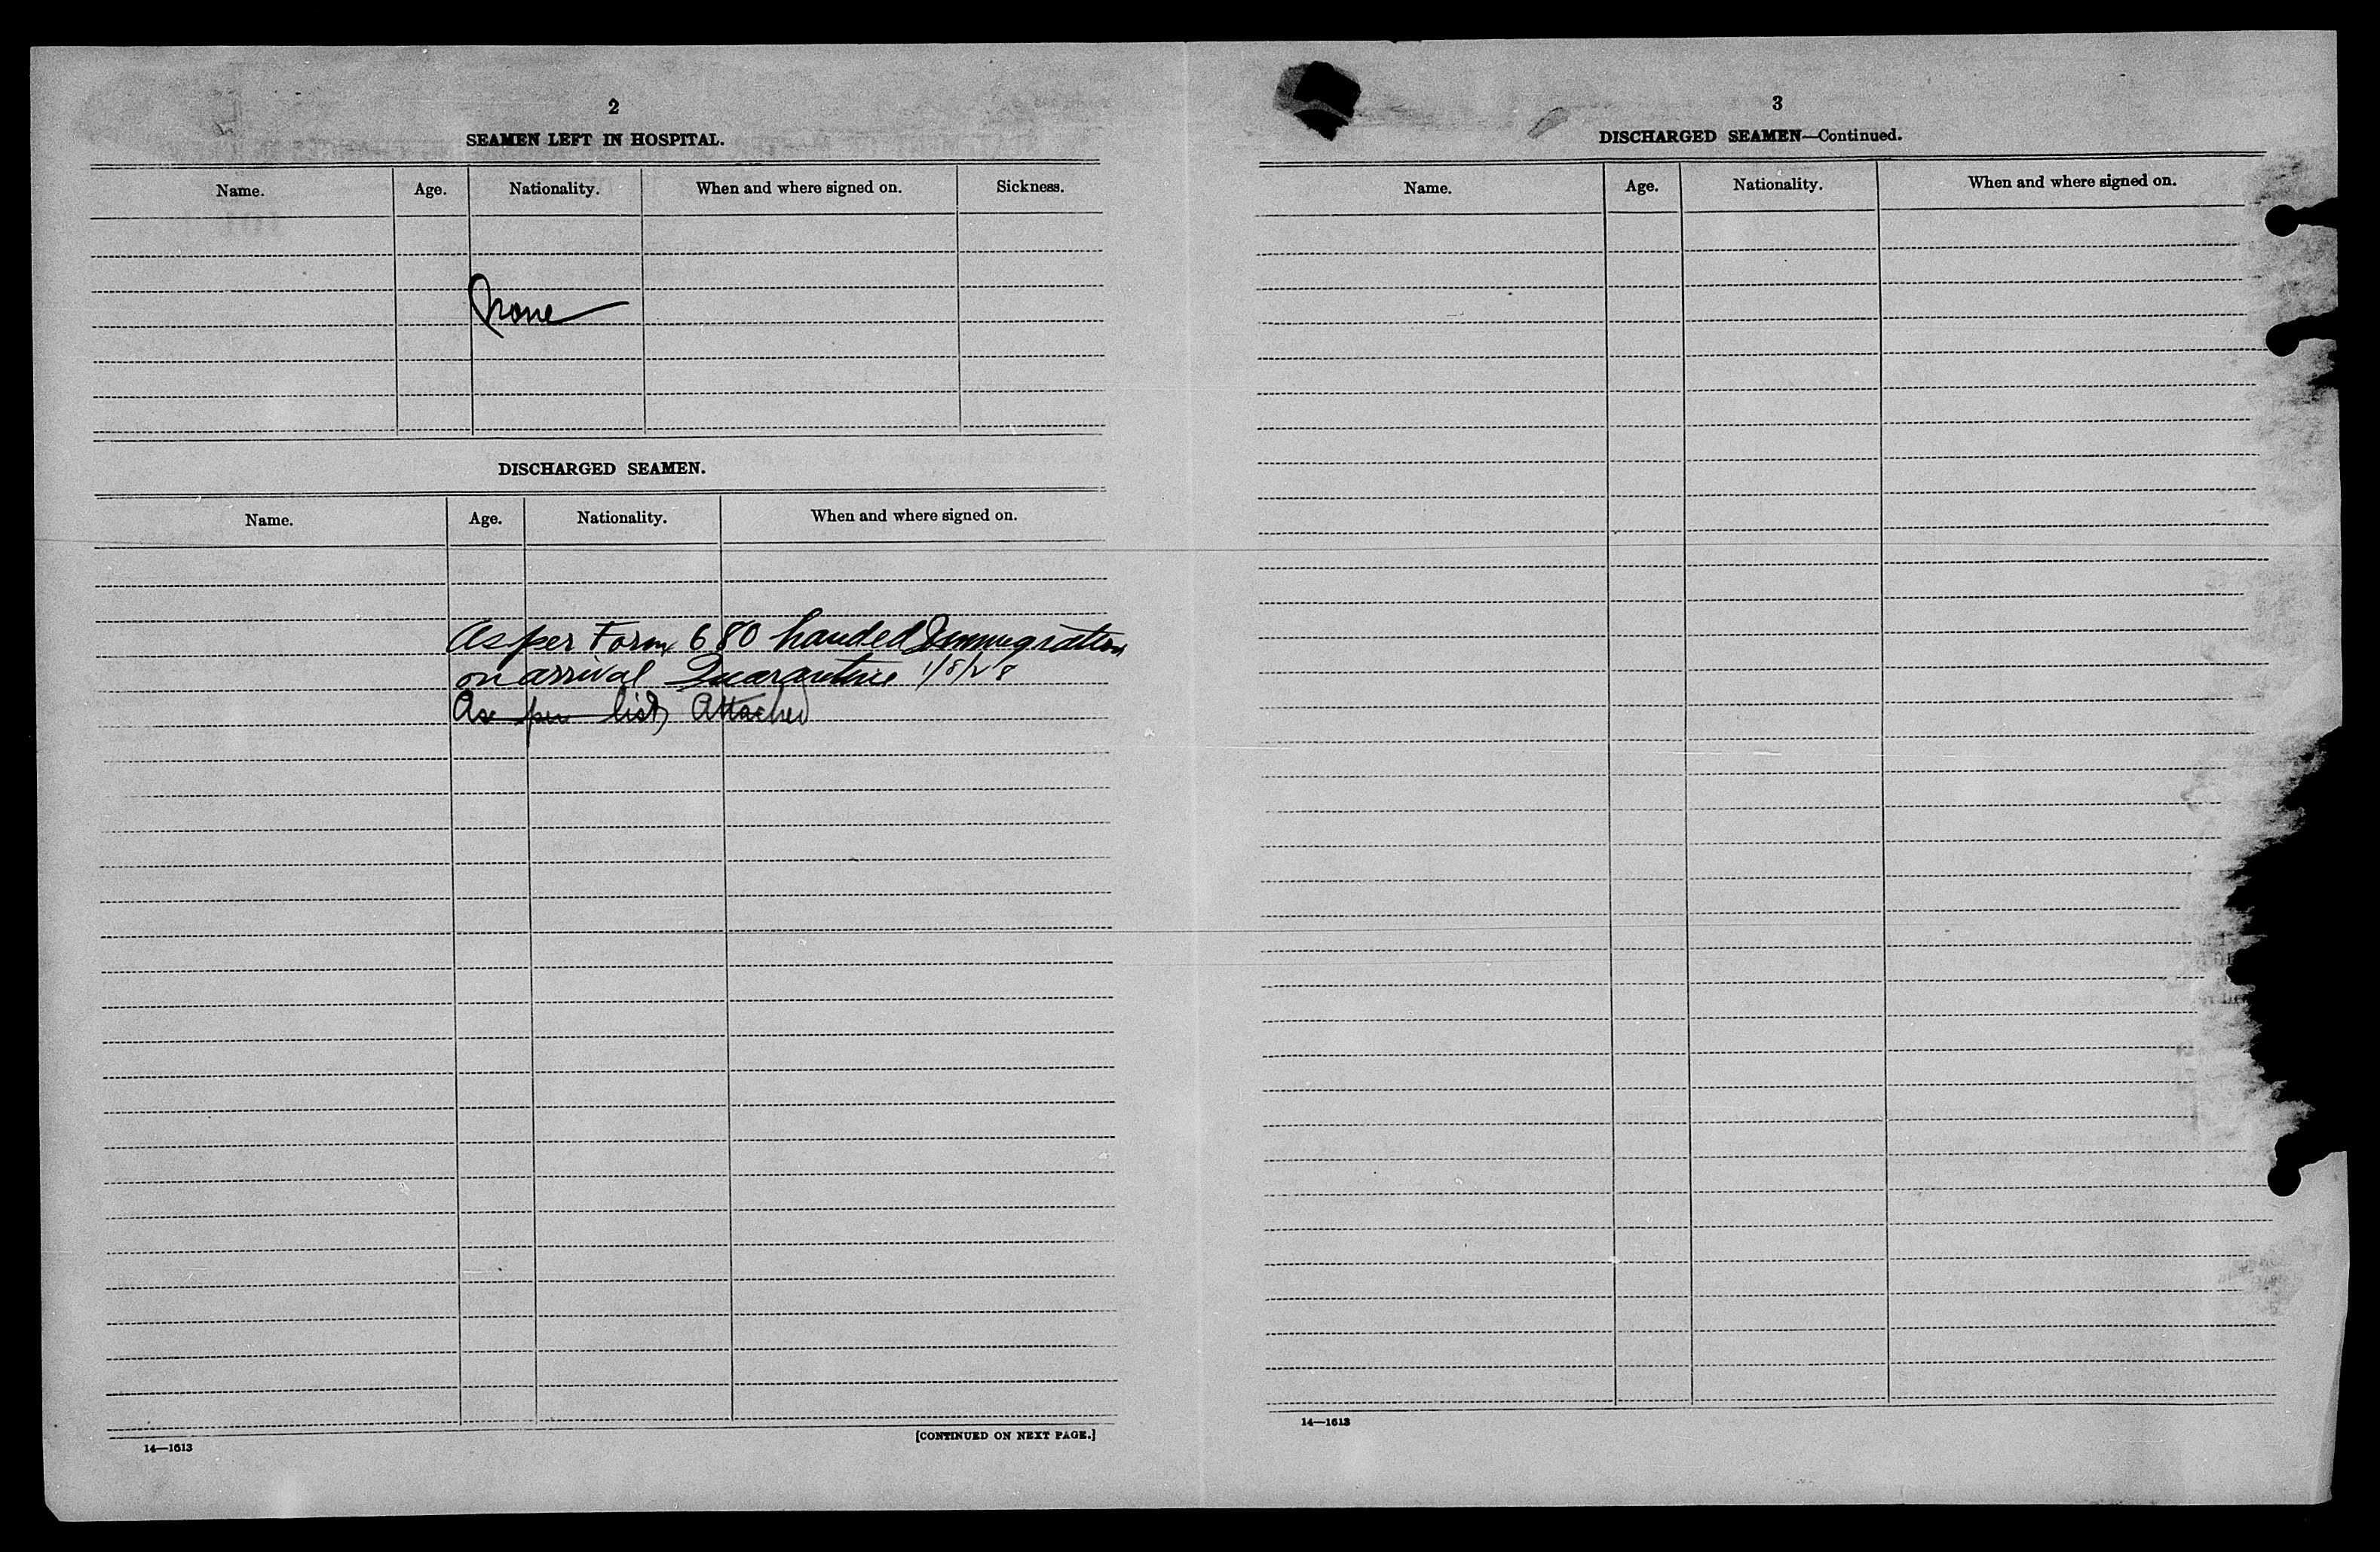 2
SEAMEN LEFT IN HOSPITAL.
Name. Age. Nationality. When and where signed on. Sickness.
None
DISCHARGED SEAMEN.
Name. Age. Nationality. When and where signed on.
As per Form 680 handed Immigration
on arrival Quarantine 1/8/28
As per list Attached
14—1613
[CONTINUED ON NEXT PAGE.]
3
DISCHARGED SEAMEN—Continued.
Name. Age. Nationality. When and where signed on.
14—1613